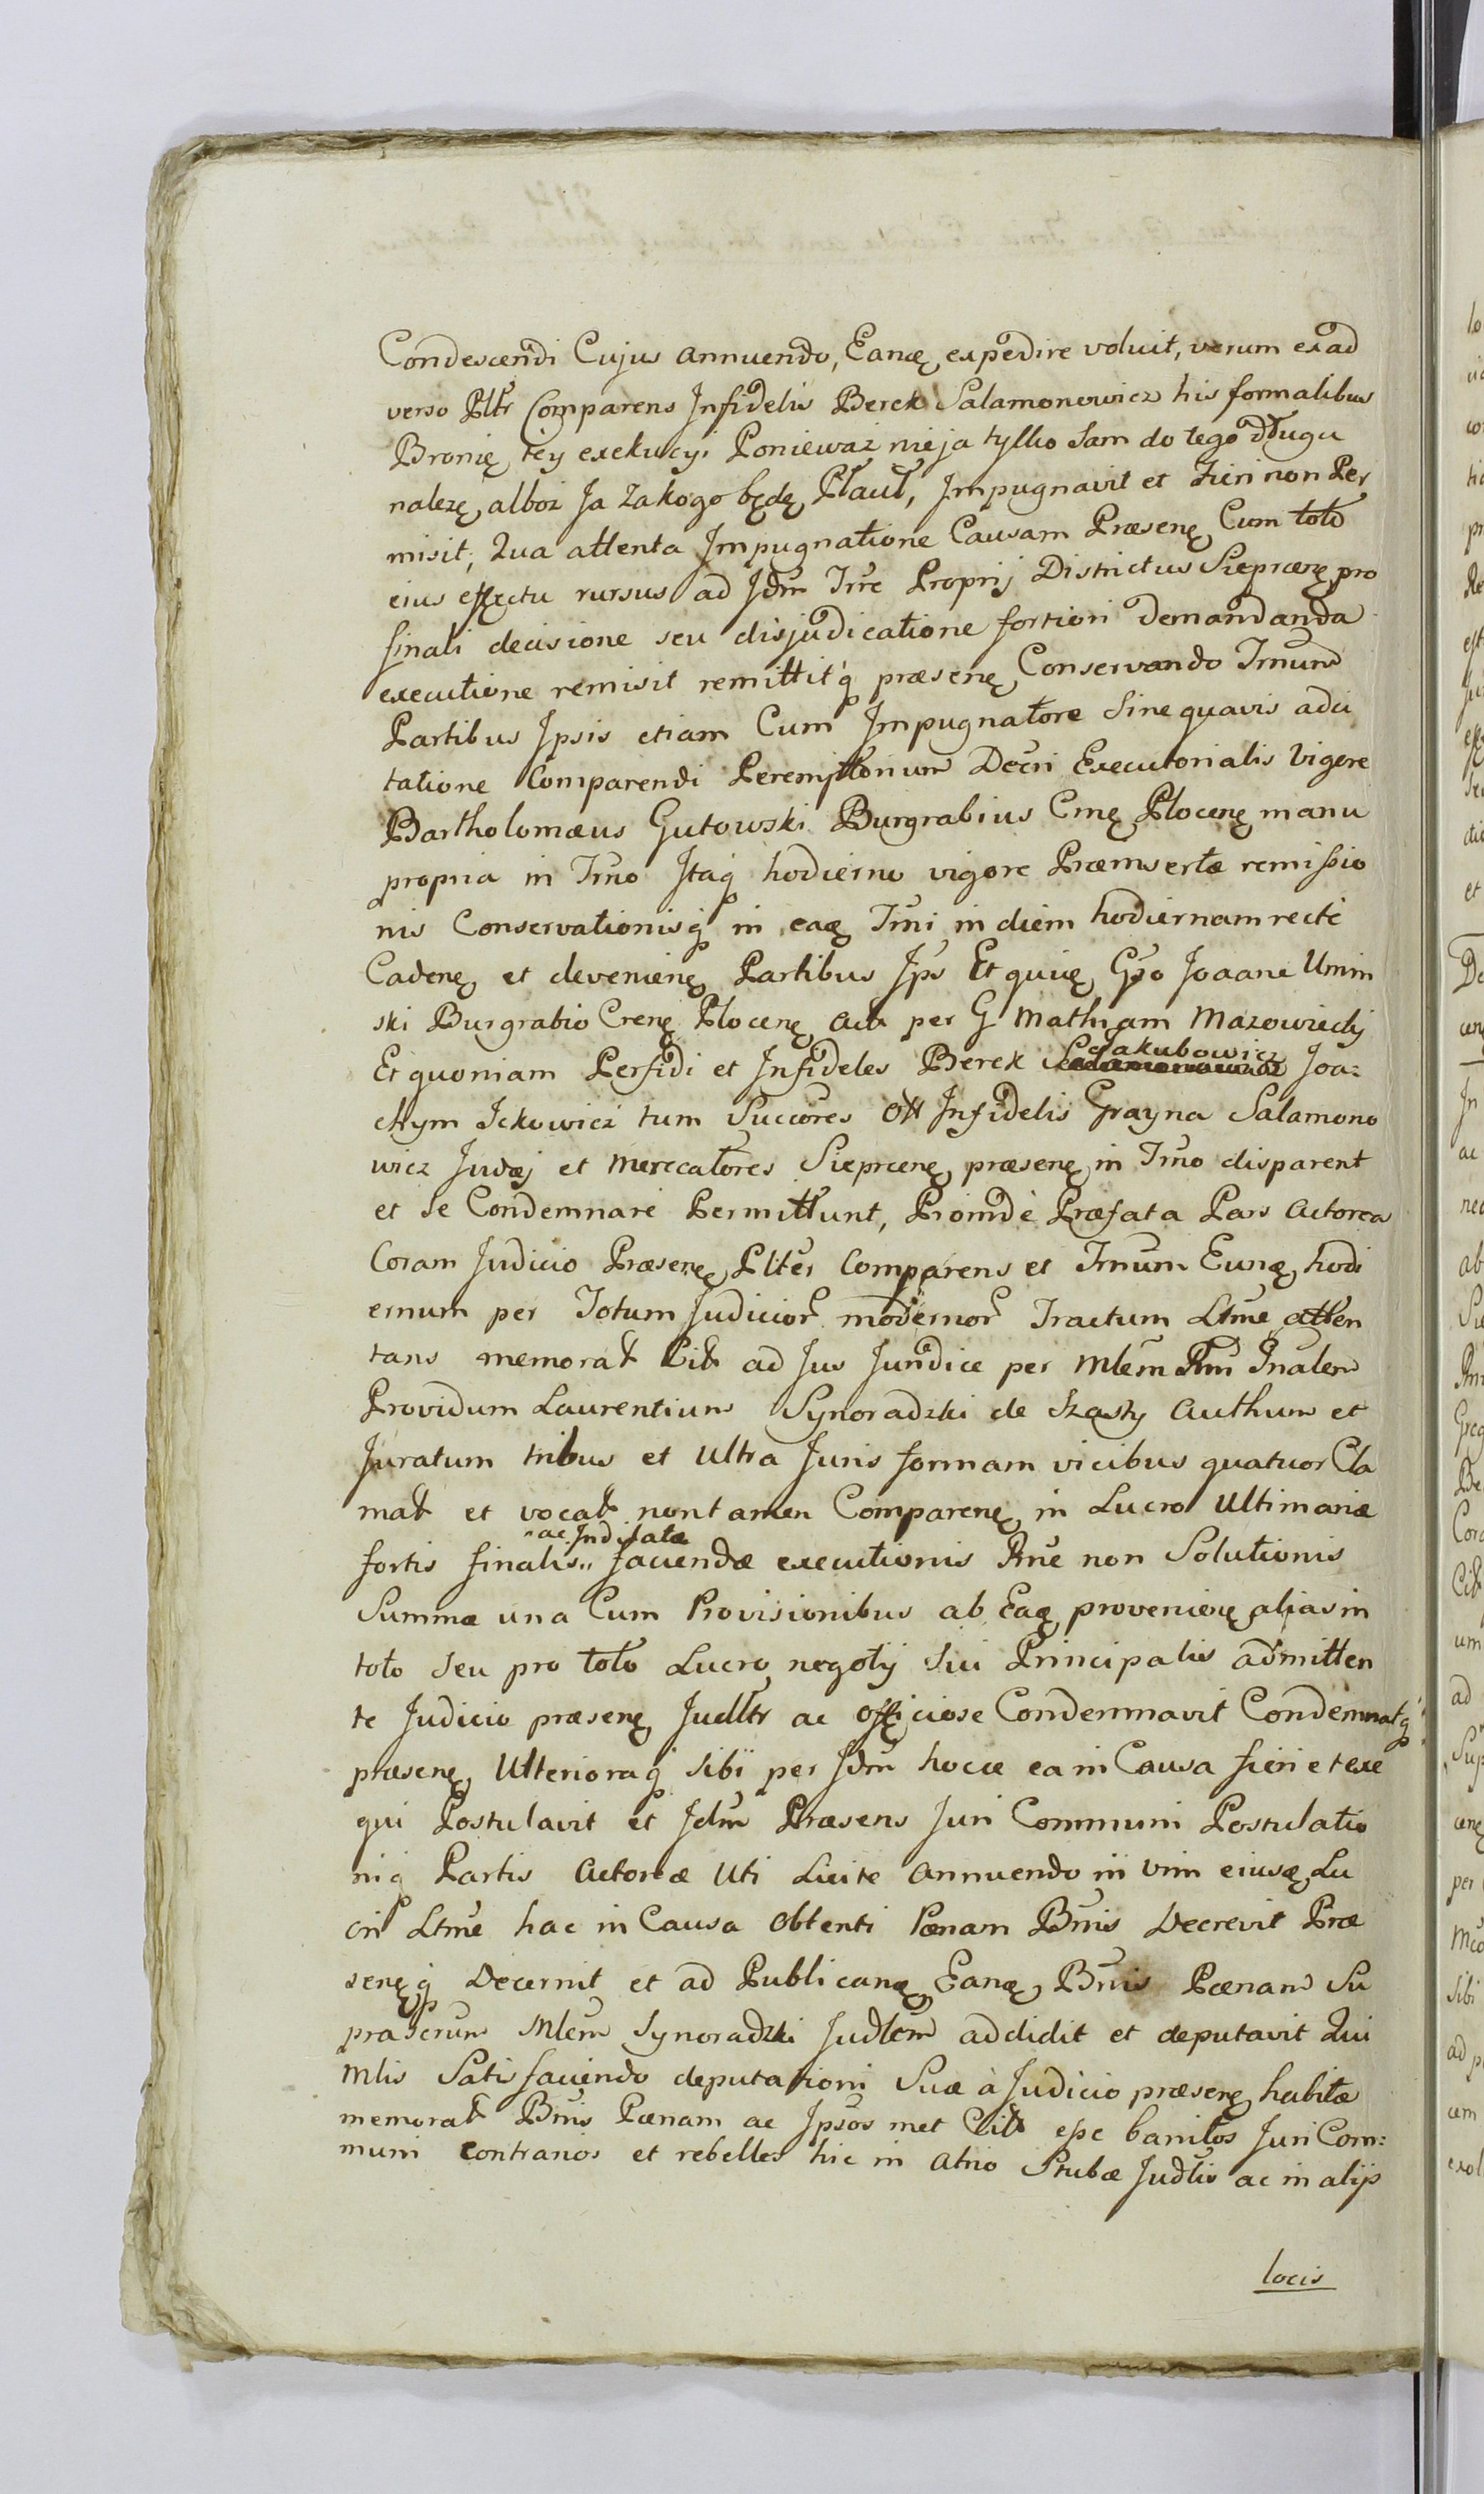 Condescendi Cujus annuendo, Eanę expedire voluit, verum ex ad
verso Pltr Comparens Infidelis Berek Salamonowicz his formalibus
Bronię tey exekucyi Ponieważ nie ja tylko sam do tego długu
należę, alboż Ja za kogo będę Płacił, Impugnavit et Fieri non Per
misit, Qua attenta Impugnatione Causam Præsenę Cum toto
eius effectu rursus ad Jdm Trre Proprij Districtus Sieprcenę pro
finali decisione seu disjudicatione fortiori demandanda
executione remisit remittitq præsenę Conservando Tmum
Partibus Ipsis etiam Cum Impugnatore Sine quavis adci
tatione Comparendi Peremptorium Decri Executorialis Vigore
Bartholomæus Gutowski Burgrabius Cmę Plocenę manu
propria in Tmo Itaq hodierno vigore Præinsertæ remissio
nis Conservationisq in eaę Tmi in diem hodiernam recte
Cadenę et devenienę Partibus Jps Et quiię Gso Joanne Umin
ski Burgrabio Crenę Plocenę Actr per G Mathiam Mazowiecki
Et quoniam Perfidi et Infideles Berek Jakubowicz Joa:
chym Ickowicz tum Succores Olt Infidelis Grayna Salamono
wicz Judæj et Mercatores Sieprcenę præsenę in Tmo disparent
et se Condemnare Permittunt, Proinde Præfata Pars Actorea
Coram Judicio Præsenę Plter Comparens et Tmum Eunę hodi
ernum per Totum Judicior modernor Tractum Ltme atten
tans memorat Citt ad Jus Juridice per Mlem Rni Jnalem
Providum Laurentium Synoradzki de Szasty Authum et
Juratum tribus et Ultra Juris formam vicibus quatuor Cla
mat et vocat non tamen Comparenę in Lucro Ultimariæ
"ac Judicatæ
fortis finalis" faciendæ executionis Rne non Solutionis
Summæ una Cum Provisionibus ab Eaę provenienę alias in
toto seu pro toto Lucro negotij sui Principalis admitten
te Judicio præsenę Judltr ac Officiose Condemnavit Condemnatq
præsenę Ulterioraq sibi per Jdm hocce ea in Causa fieri et exe
qui Postulavit et Jdm Præsens Juri Communi Postulatio
niq Partis Actoreæ Uti Licite annuendo in vim eiusę Lu
cri Ltme hac in Causa Obtenti Pænam Bnis Decrevit Præ
senęq Decernit et ad Publicanę Eanę Bnis Pænam Su
prascrum Mlem Synoradzki Judlem addidit et deputavit Qui
Mlis Satisfaciendo deputationi Suæ à Judicio præsenę habitæ
memorat Bnis Pænam ac Ipsos met Citt esse banitos Juri Com:
muni contrarios et rebelles hic in Atrio Stubæ Judlis ac in alijs
locis